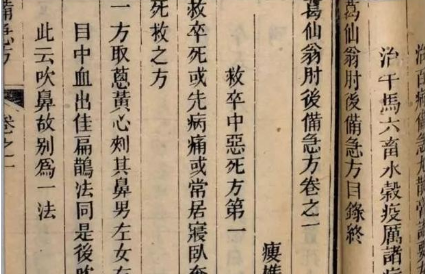 治百病備急丸散膏諸要
治牛馬六畜水穀疫厲諸
葛仙翁肘後備急方目錄終
葛仙翁肘後備急方卷之一
瘦樵
救卒中惡死方第一
救卒死或先病痛或常居寢臥奄
死救之方
一方取蔥黃心刺其鼻男左女右
目中血出佳扁鵲法同是後吹
此云吹鼻故別爲一法
備急方 卷之一